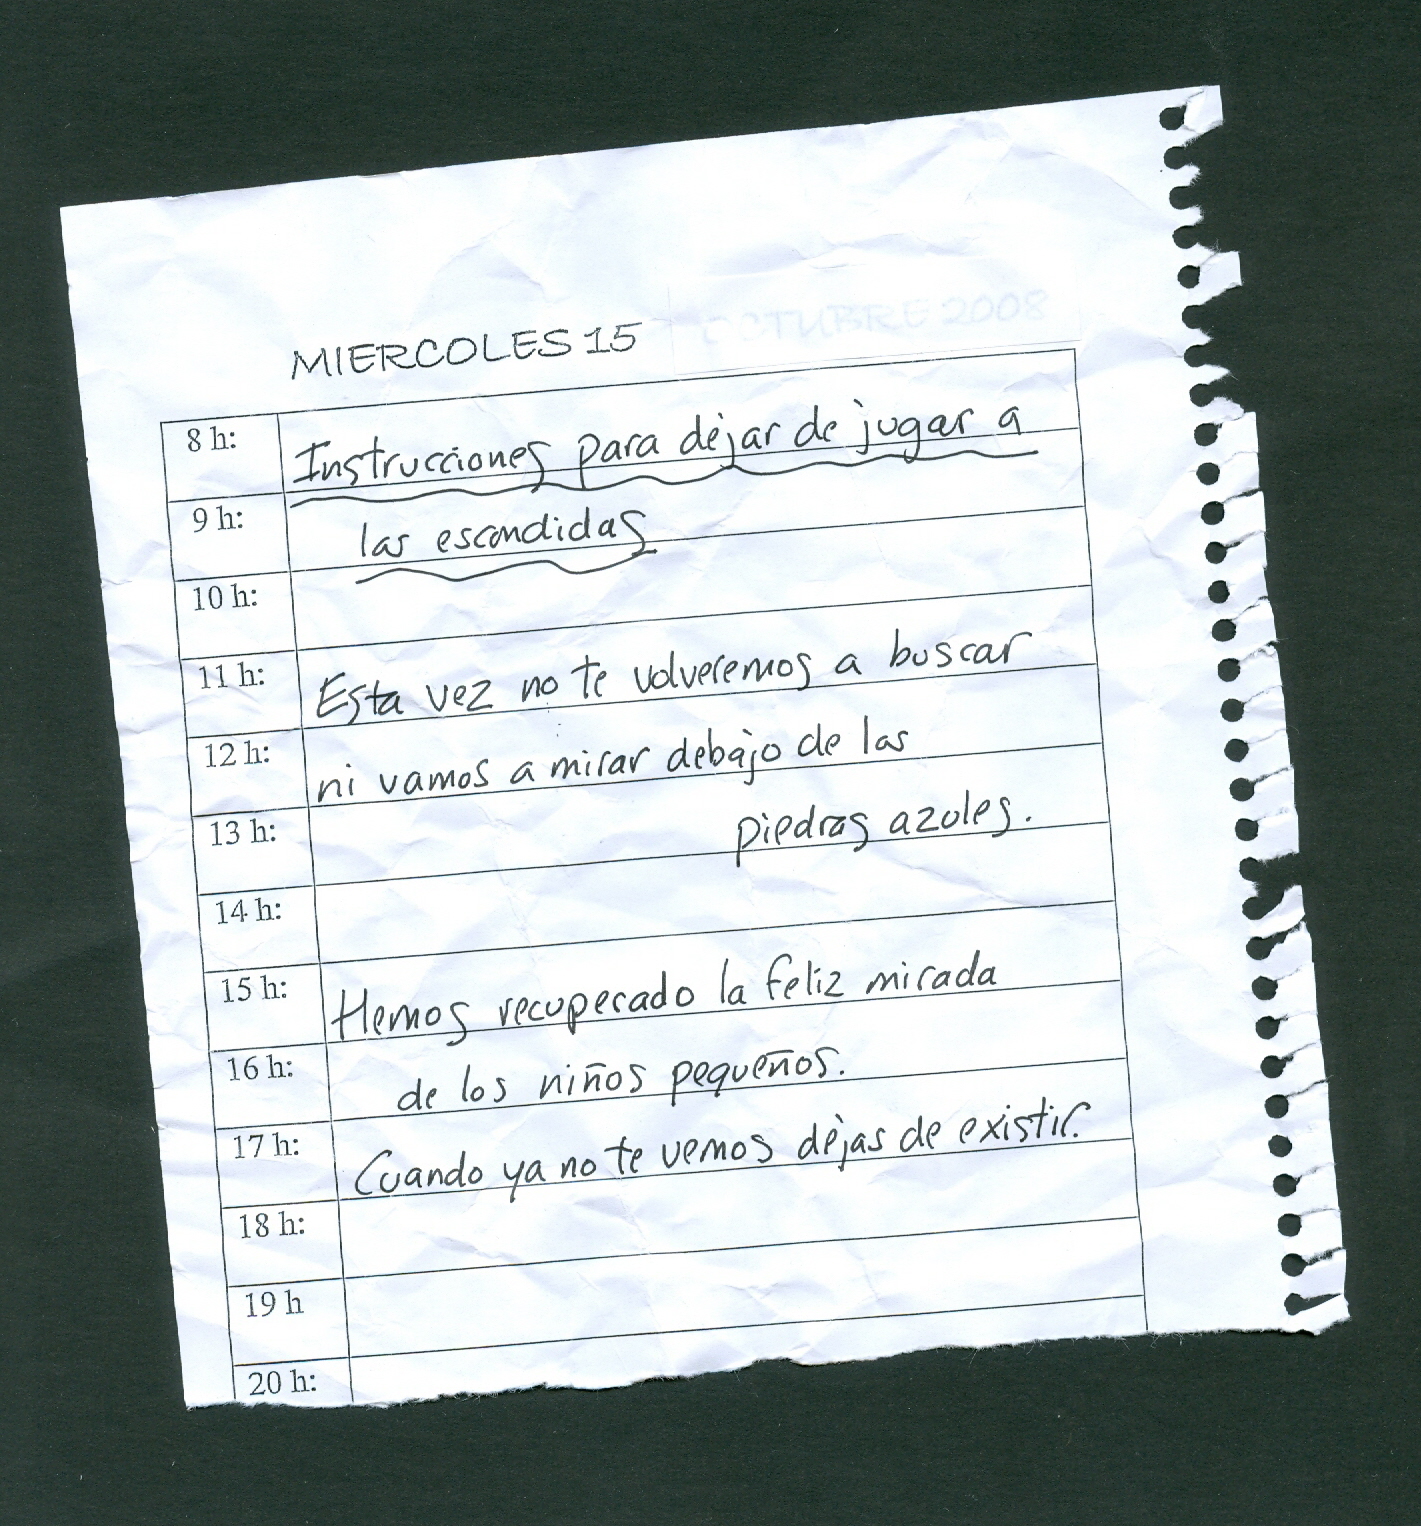 MIERCOLES 15 OCTUBRE 2008
8 h: Instrucciones para dejar de jugar a
9 h: las escondidas
10 h:
11 h: Esta vez no te volveremos a buscar
12 h: ni vamos a mirar debajo de las
13 h: piedras azules.
14 h:
15 h: Hemos recuperado la feliz mirada
16 h: de los niños pequeños.
17 h: Cuando ya no te vemos dejas de existir.
18 h:
19 h
20 h: